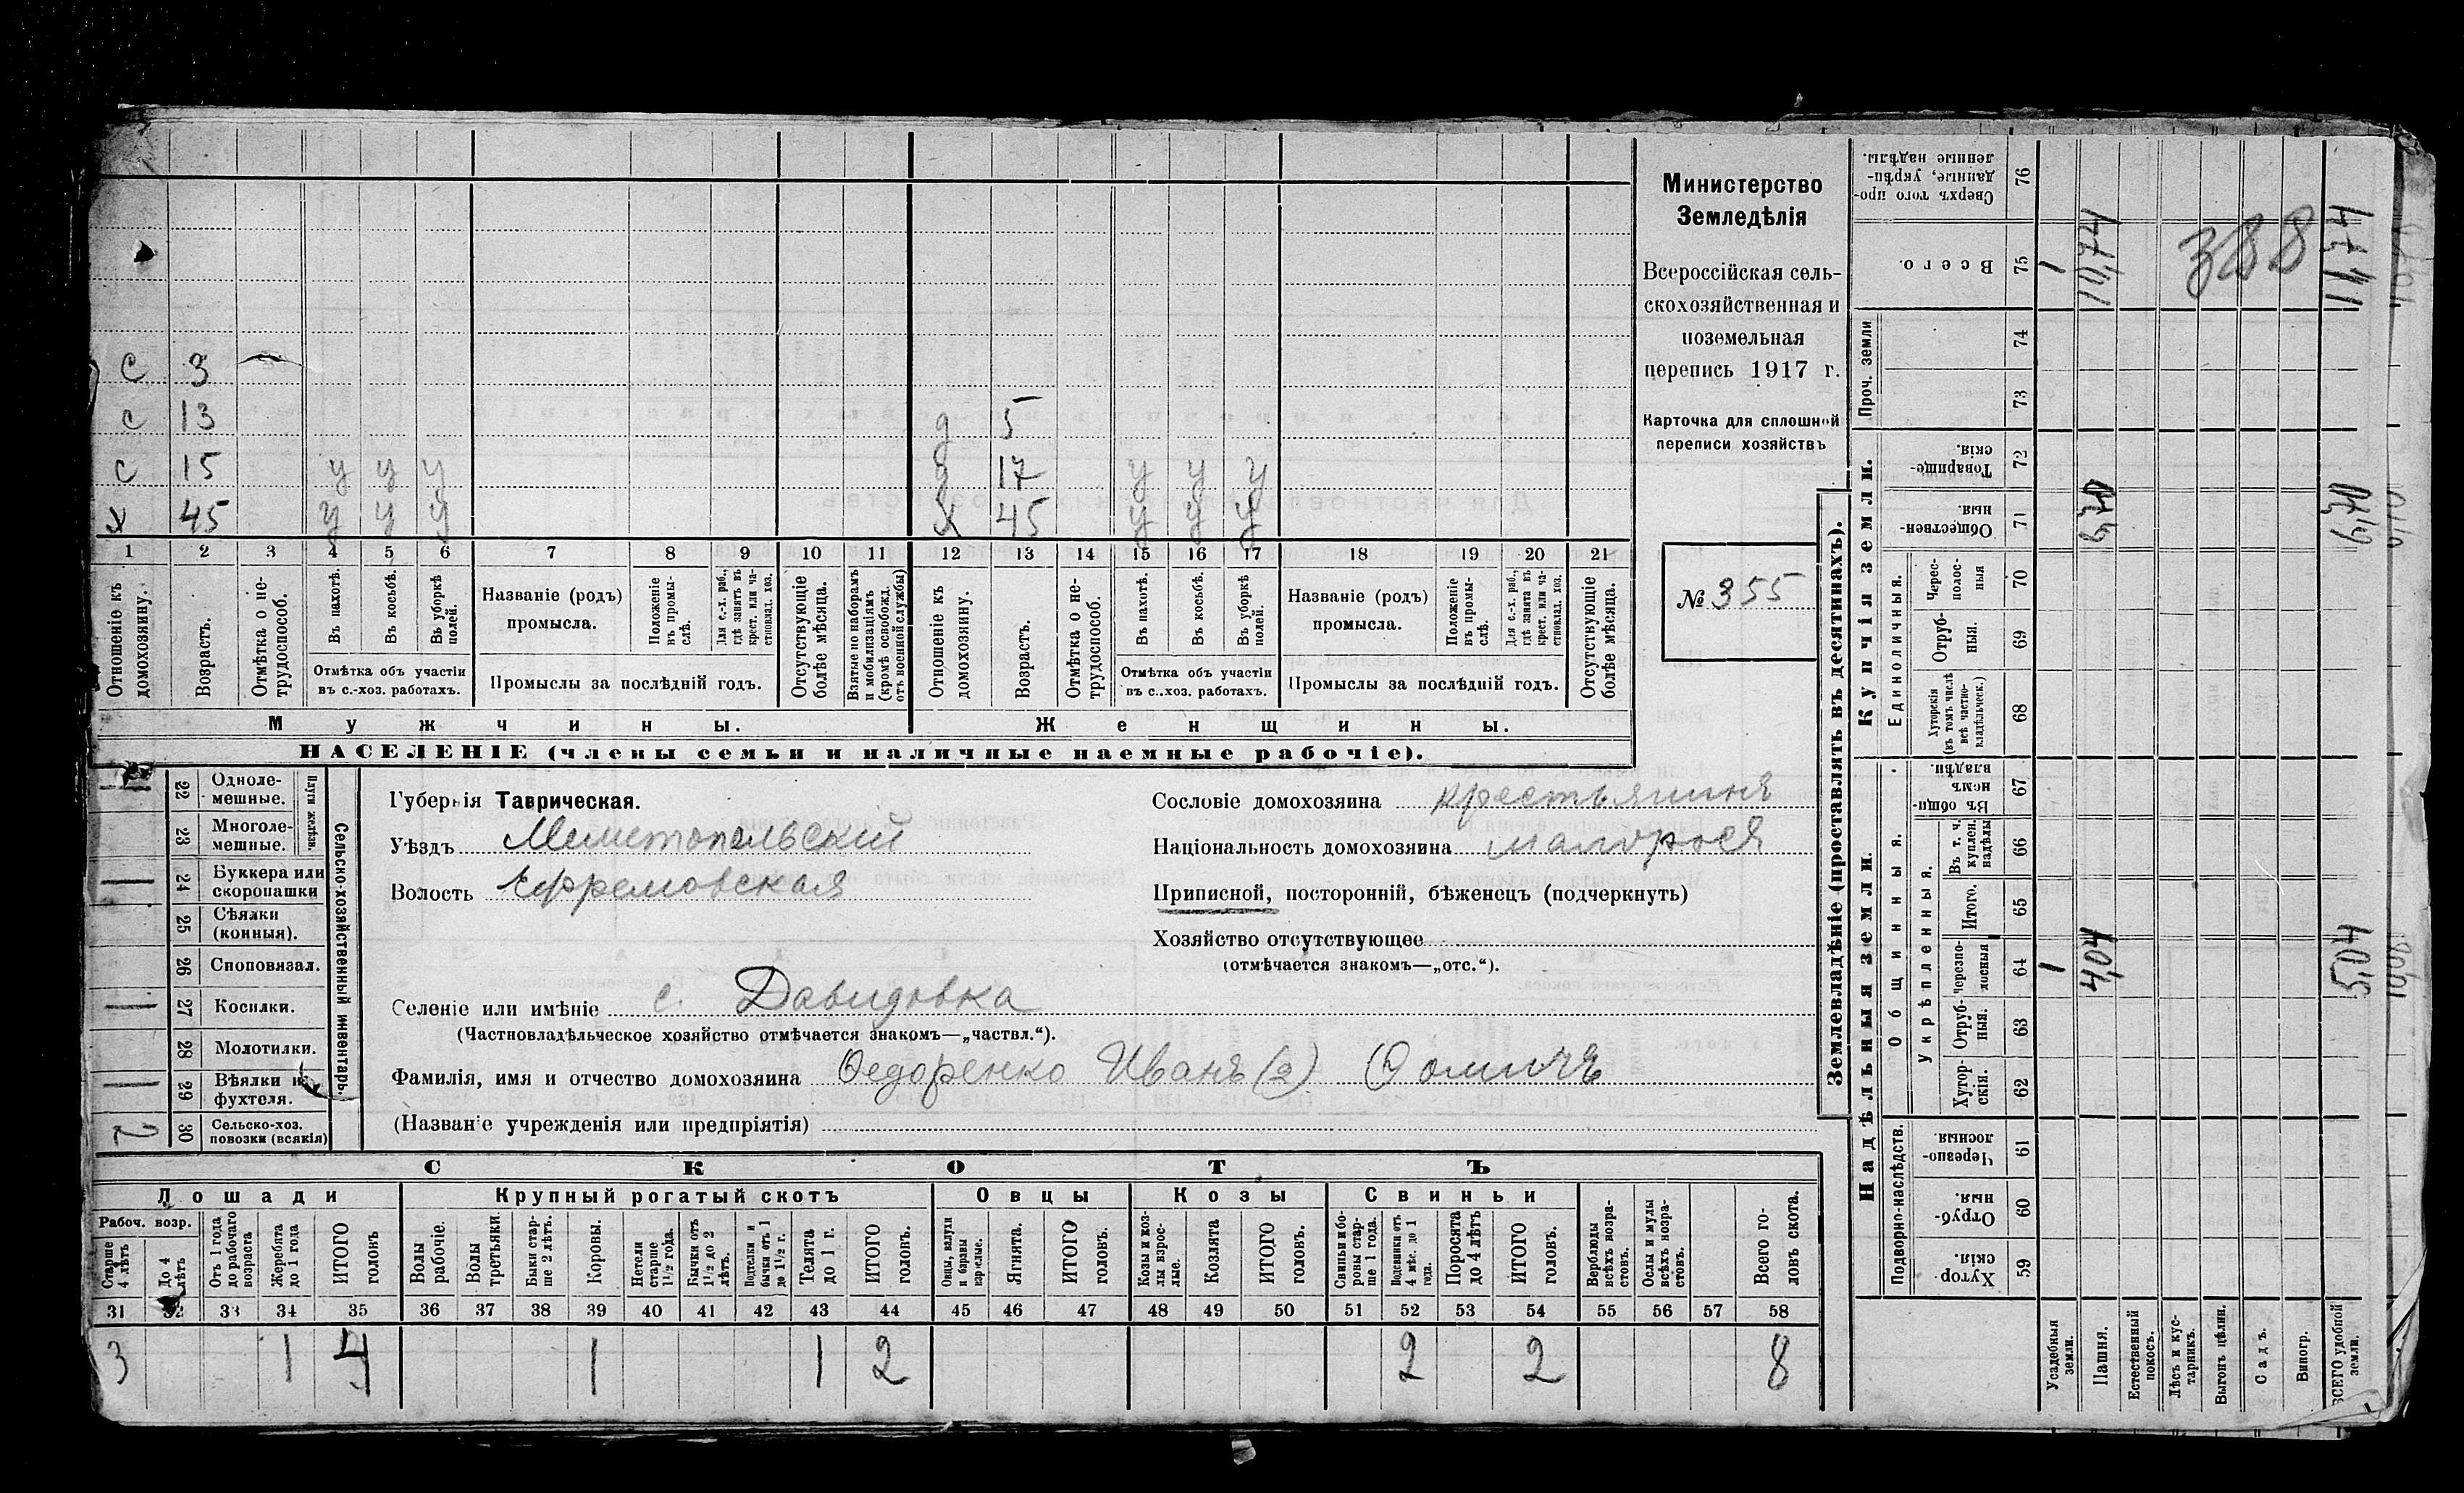 Министерство
Земледѣлія
Всероссійская сель-
скохозяйственная и
поземельная
перепись 1917 г.
Карточка для сплошной
переписи хозяйствъ
№ 355
с 3
с 13 д 5
с 15 у у у д 17 у у у
х 45 у у у х 45 у у у
1 2 3 4 5 6 7 8 9 10 11 12 13 14 15 16 17 18 19 20 21
Отношеніе къ домохозяину.
Возрастъ.
Отмѣтка о не-трудоспособ.
Въ пахотѣ.
Въ косьбѣ.
Въ уборкѣ полей.
Отмѣтка объ участіи
въ с.-хоз. работахъ.
Названіе (родъ)
промысла.
Положеніе въ промы-слѣ.
Для с.-х. раб., гдѣ занятъ въ крест. или ча-стновлад. хоз.
Промыслы за послѣдній годъ.
Отсутствующіе болѣе мѣсяца.
Взятые по наборамъ и мобилизаціямъ (кромѣ освобожд. отъ военной службы)
Отношеніе къ домохозяину.
Возрастъ.
Отмѣтка о не-трудоспособ.
Въ пахотѣ.
Въ косьбѣ.
Въ уборкѣ полей.
Отмѣтка объ участіи
въ с..хоз. работахъ.
Названіе (родъ)
промысла.
Положеніе въ промы-слѣ.
Для с.-х. раб., гдѣ занята въ крест. или ча-стновлад. хоз.
Промыслы за послѣдній годъ.
Отсутствующіе болѣе мѣсяца.
Мужчины. Женщины.
НАСЕЛЕНІЕ (члены семьи и наличные наемные рабочіе).
22 Одноле-мешные.
23 Многоле-мешные.
Плуги желѣзн.
24 Буккера или скоропашки
25 Сѣялки (конныя).
26 Споповязал.
27 Косилки.
28 Молотилки.
29 Вѣялки и фухтеля.
30 Сельско-хоз. повозки (всякія) 2
Сельско-хозяйственный инвентарь.
Губернія Таврическая.
Уѣздъ Мелитопольскій
Волость Ефремовская
Сословіе домохозяина крестьянинъ
Національность домохозяина малороссъ
Приписной, посторонній, бѣженецъ (подчеркнуть)
Хозяйство отсутствующее
(отмѣчается знакомъ—„отс.“).
Селеніе или имѣніе с. Давидовка
(Частновладѣльческое хозяйство отмѣчается знакомъ—„частвл.“).
Фамилія, имя и отчество домохозяина Ѳедоренко Иванъ (2) Ѳомичъ
(Названіе учрежденія или предпріятія)
СКОТЪ
Лошади Крупный рогатый скотъ Овцы Козы Свиньи
Рабоч. возр.
Старше 4 лѣтъ
До 4 лѣтъ
Отъ 1 года до рабочаго возраста
Жеребята до 1 года
ИТОГО головъ
Волы рабочіе.
Волы третьяки.
Быки стар-ше 2 лѣтъ.
Коровы.
Нетели старше 1½ года.
Бычки отъ 1½ до 2 лѣтъ.
Подтелки и бычки отъ 1 до 1½ г.
Телята до 1 г.
ИТОГО головъ.
Овцы, валухи и бараны взрослые.
Ягнята.
ИТОГО головъ.
Козы и коз-лы взрос-лые.
Козлята
ИТОГО головъ.
Свиньи и бо-ровы стар-ше 1 года.
Подсвинки отъ 4 мѣс. до 1 года.
Поросята до 4 лѣтъ
ИТОГО головъ.
Верблюды всѣхъ возра-стовъ.
Ослы и мулы всѣхъ возра-стовъ.
Всего го-ловъ скота.
31 32 33 34 35 36 37 38 39 40 41 42 43 44 45 46 47 48 49 50 51 52 53 54 55 56 57 58
3 1 4 1 1 2 2 2 8
Землевладѣніе (проставлять въ десятинахъ).
Купчія земли.
Надѣльныя земли.
Сверхъ того про-данные, укрѣп-ленные надѣлы. 76
Всего. 75 1 10,74 388 11,74
Проч. земли 74
73
Товарище-скія. 72
Обществен-ныя. 71 6,70 6,70
Единоличныя.
Черес-полос-ныя 70
Отруб-ныя. 69
Хуторскія (въ томъ числѣ всѣ частно-владѣльческ.) 68
Общинныя.
Въ общи-номъ владѣн. 67
Укрѣпленныя.
Въ т. ч. куплен. надѣлы 66
Итого. 65
Черезпо-лосныя 64 1 4,04 5,04
Отруб-ныя. 63
Хутор-скія. 62
Подворно-наслѣдств.
Черезпо-лосныя. 61
Отруб-ныя. 60
Хутор-скія 59
Усадебныя земли.
Пашня.
Естественный покосъ.
Лѣсъ и кус-тарникъ.
Выгонъ цѣлин.
Садъ.
Виногр.
ВСЕГО удобной земли.